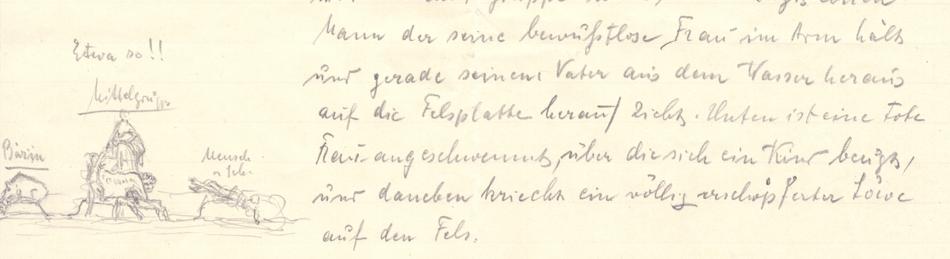 Etwa so!!
Mittelgruppe
Bärin
Mensch
einen
Mann der seine bewußtlose Frau im Arm hält
und gerade seinen Vater aus dem Wasser heraus
auf die Felsplatte herauf zieht. Unten ist eine Tote
Frau angeschwemmt, über die sich ein Kind beugt,
und daneben kriecht ein völlig erschöpfter Löwe
auf den Fels.